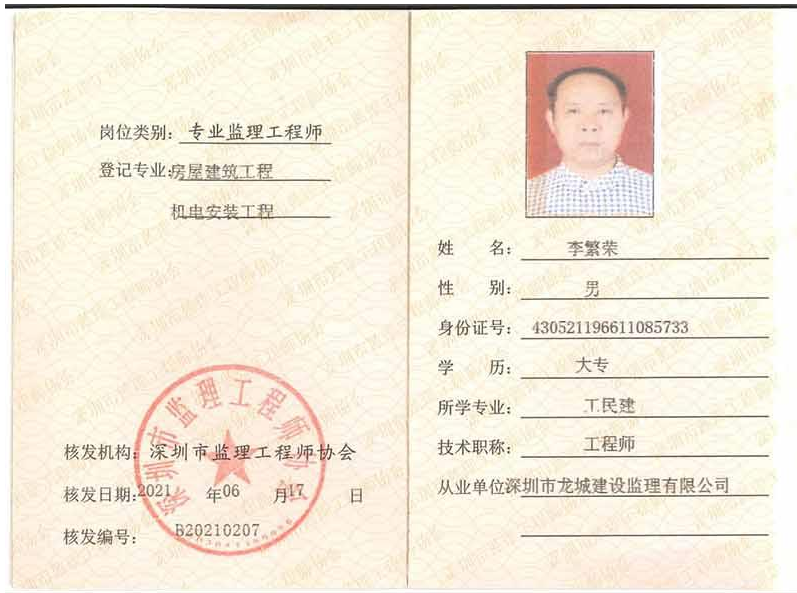 岗位类别：专业监理工程师
登记专业：房屋建筑工程
机电安装工程
深圳市监理工程师协会
核发机构：深圳市监理工程师协会
核发日期：2021年06月17日
核发编号：B20210207
姓名：李繁荣
性别：男
身份证号：430521196611085733
学历：大专
所学专业：工民建
技术职称：工程师
从业单位深圳市龙城建设监理有限公司